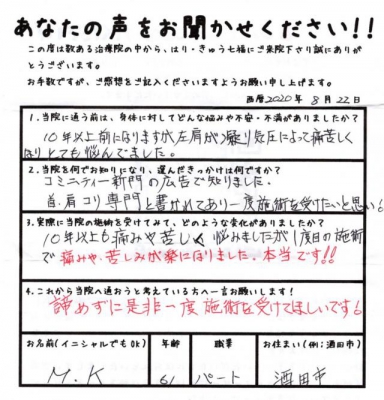 あなたの声をお聞かせください!!
この度は数ある治療院の中から、はり・きゅう七福にご来院下さり誠にありが
とうございます。
お手数ですが、ご感想をご記入くださいますようお願い申し上げます。
西暦2020年 8月 22日
1.当院に通う前は、身体に対してどんな悩みや不安・不満がありましたか?
10年以上前になりますが左肩が凝り気圧によって痛苦しく
なりとても悩んでました。
2.当院を何でお知りになり、選んだきっかけは何ですか?
コミニティー新聞の広告で知りました.
首.肩コリ専門と書かれてあり一度施術を受けたいと思い
3.実際に当院の施術を受けてみて、どのような変化がありましたか?
10年以上も痛みや苦しく悩みましたが1度目の施術
で痛みや、苦しみが楽になりました.本当です!!
4.これから当院へ通おうと考えている方へ一言お願いします!
諦めずに是非一度施術を受けてほしいです!
お名前(イニシャルでもOK) 年齢 職業 お住まい(例:酒田市)
M.K 61 パート 酒田市